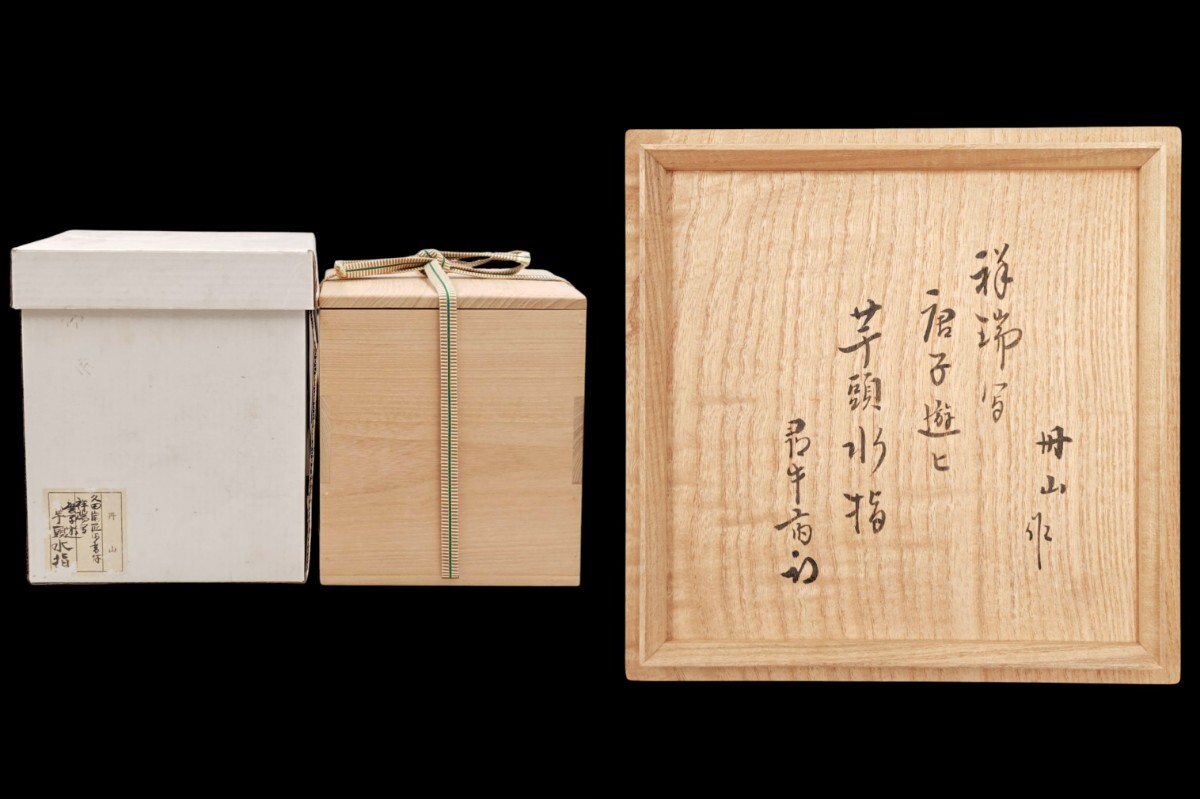 丹山作
祥瑞写
唐子遊ヒ
芋頭水指
尋牛斎
丹山
久田宗匠御書付
祥瑞写
唐子遊
芋頭水指